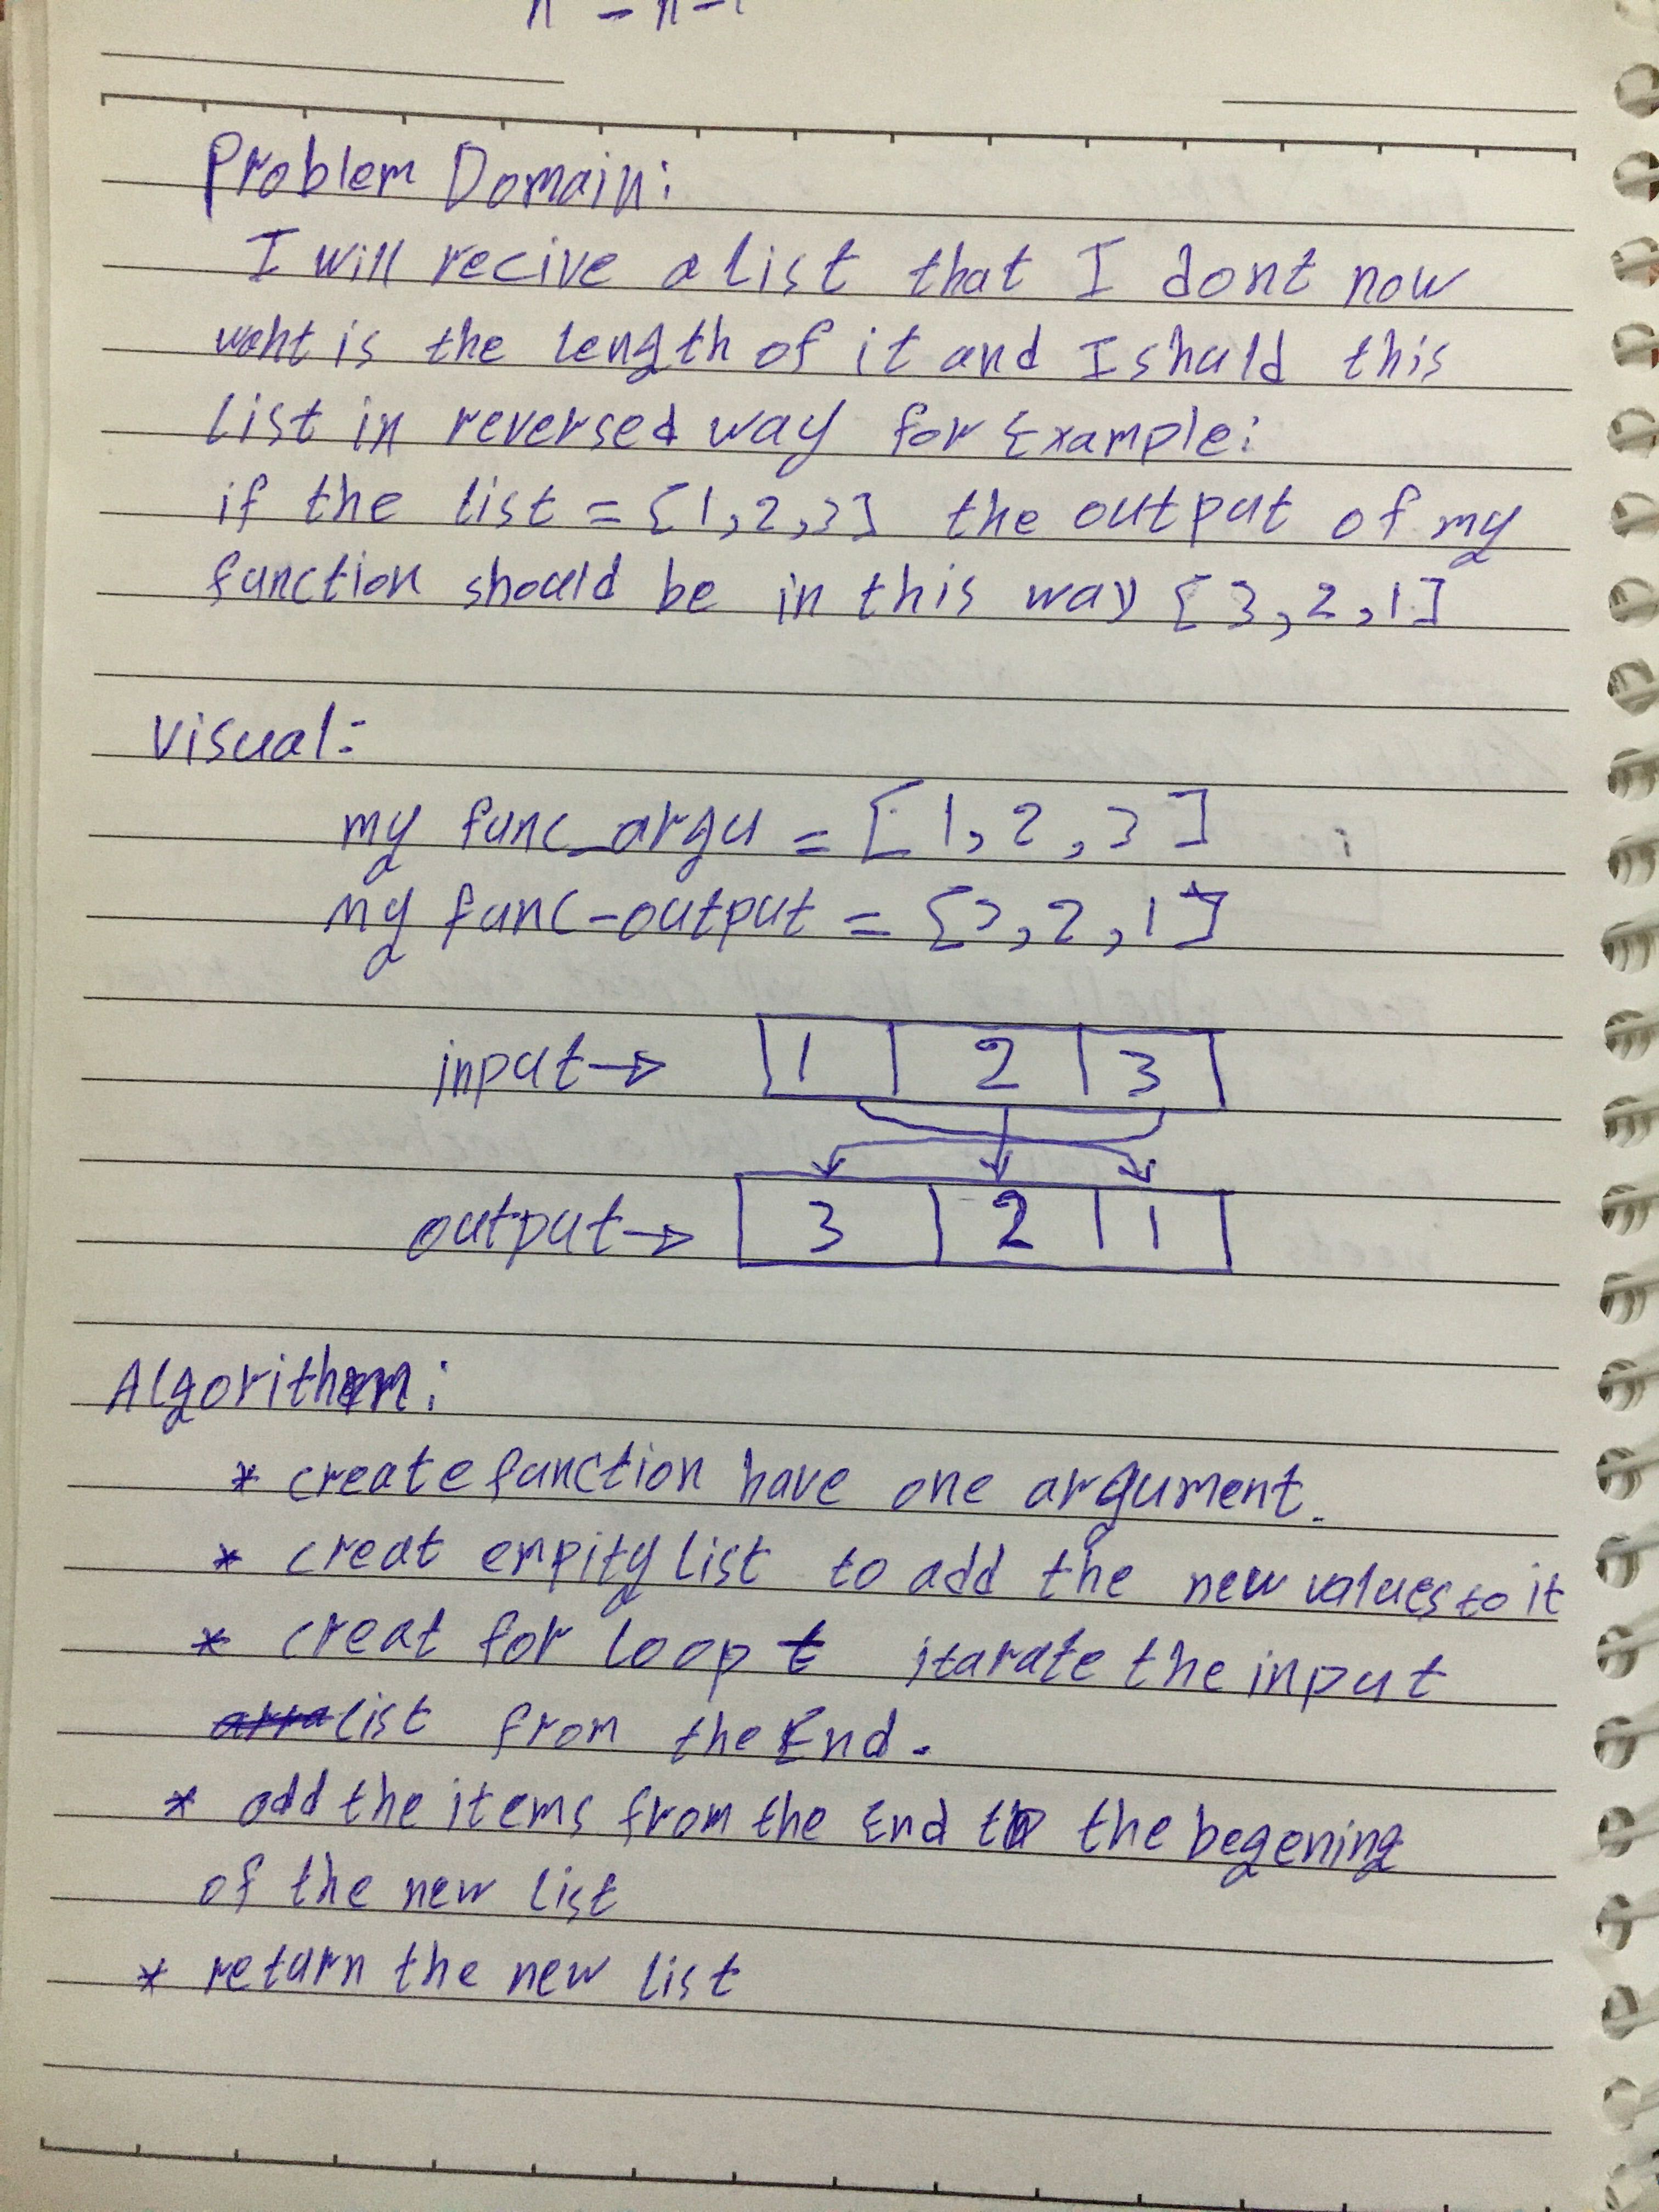 Problem Domain:
I will recive a list that I dont now
waht is the length of it and I shuld this
list in reversed way for Example:
if the list = [1,2,3] the output of my
function should be in this way [3,2,1]
Visual:
my func_argu = [1,2,3]
my func-output = [3,2,1]
input→ 1 2 3
output→ 3 2 1
Algorithm:
* create function have one argument.
* creat empity list to add the new values to it
* creat for loop t itarate the input
list from the End.
* add the items from the End to the begening
of the new list
* return the new list